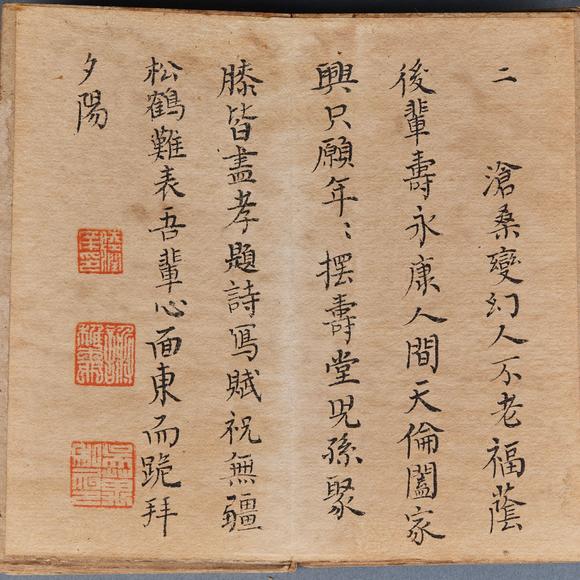 二
滄桑變幻人不老福蔭
後輩壽永康人間天倫闔家
興只願年〻擺壽堂児孫聚
膝皆盡孝題詩寫賦祝無疆
松鶴難表吾輩心面東而跪拜
夕陽